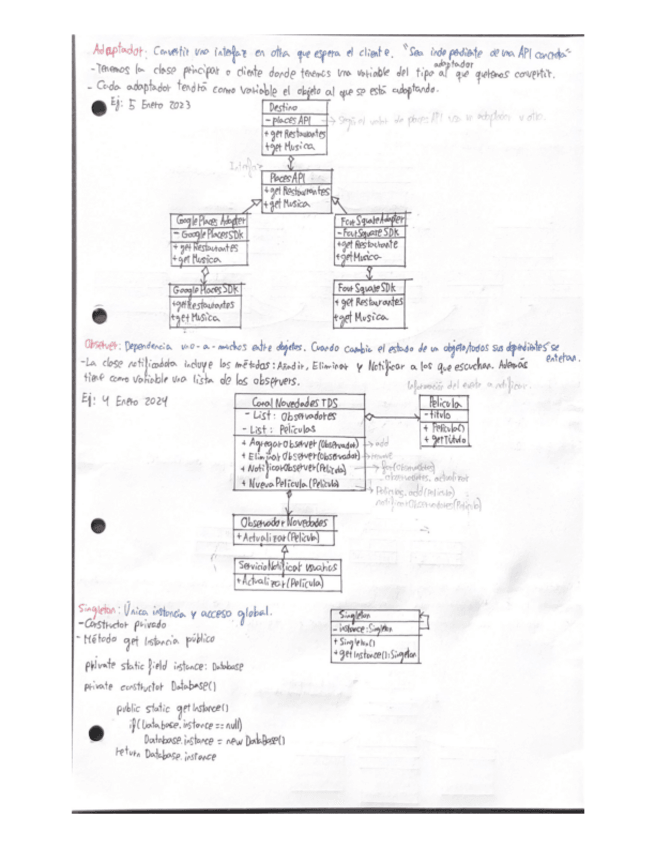 Adaptador: Convertir una interfaz en otra que espera el cliente. "Sea independiente de una API concreta"
- Tenemos la clase principal o cliente donde tenemos una variable del tipo adaptador al que queremos convertir.
- Cada adaptador tendrá como variable el objeto al que se está adaptando.
Ej: 5 Enero 2023
Destino
- places API
+ get Restaurantes
+ get Musica
Interfaz
Places API
+ get Restaurantes
+ get Musica
Google Places Adapter
- Google Places SDK
+ get Restaurantes
+ get Musica
Four Square Adapter
- Four Square SDK
+ get Restaurante
+ get Musica
Google Places SDK
+ get Restaurantes
+ get Musica
Four Square SDK
+ get Restaurantes
+ get Musica
Observer: Dependencia uno-a-muchos entre objetos. Cuando cambia el estado de un objeto, todos sus dependientes se enteran.
- La clase notificadora incluye los métodos: Añadir, Eliminar y Notificar a los que escuchan. Además
tiene como variable una lista de los observers.
Ej: 4 Enero 2024
Información del evento a notificar.
Canal Novedades TDS
- List: Observadores
- List: Películas
+ Agregar Observer (Observador)
+ Eliminar Observer (Observador)
+ Notificar Observer (Película)
+ Nueva Película (Película)
Película
- título
+ Película()
+ get Título
add
Películas.add(Película)
notificarObservadores(Película)
Observador Novedades
+ Actualizar (Película)
Servicio Notificar Usuarios
+ Actualizar (Película)
Singleton: Única instancia y acceso global.
- Constructor privado
- Método get Instancia público
private static field instance: Database
private constructor Database()
public static getInstance()
if(Database.instance == null)
Database.instance = new DataBase()
return Database.instance
Singleton
- instance: Singleton
+ Singleton()
+ getInstance(): Singleton